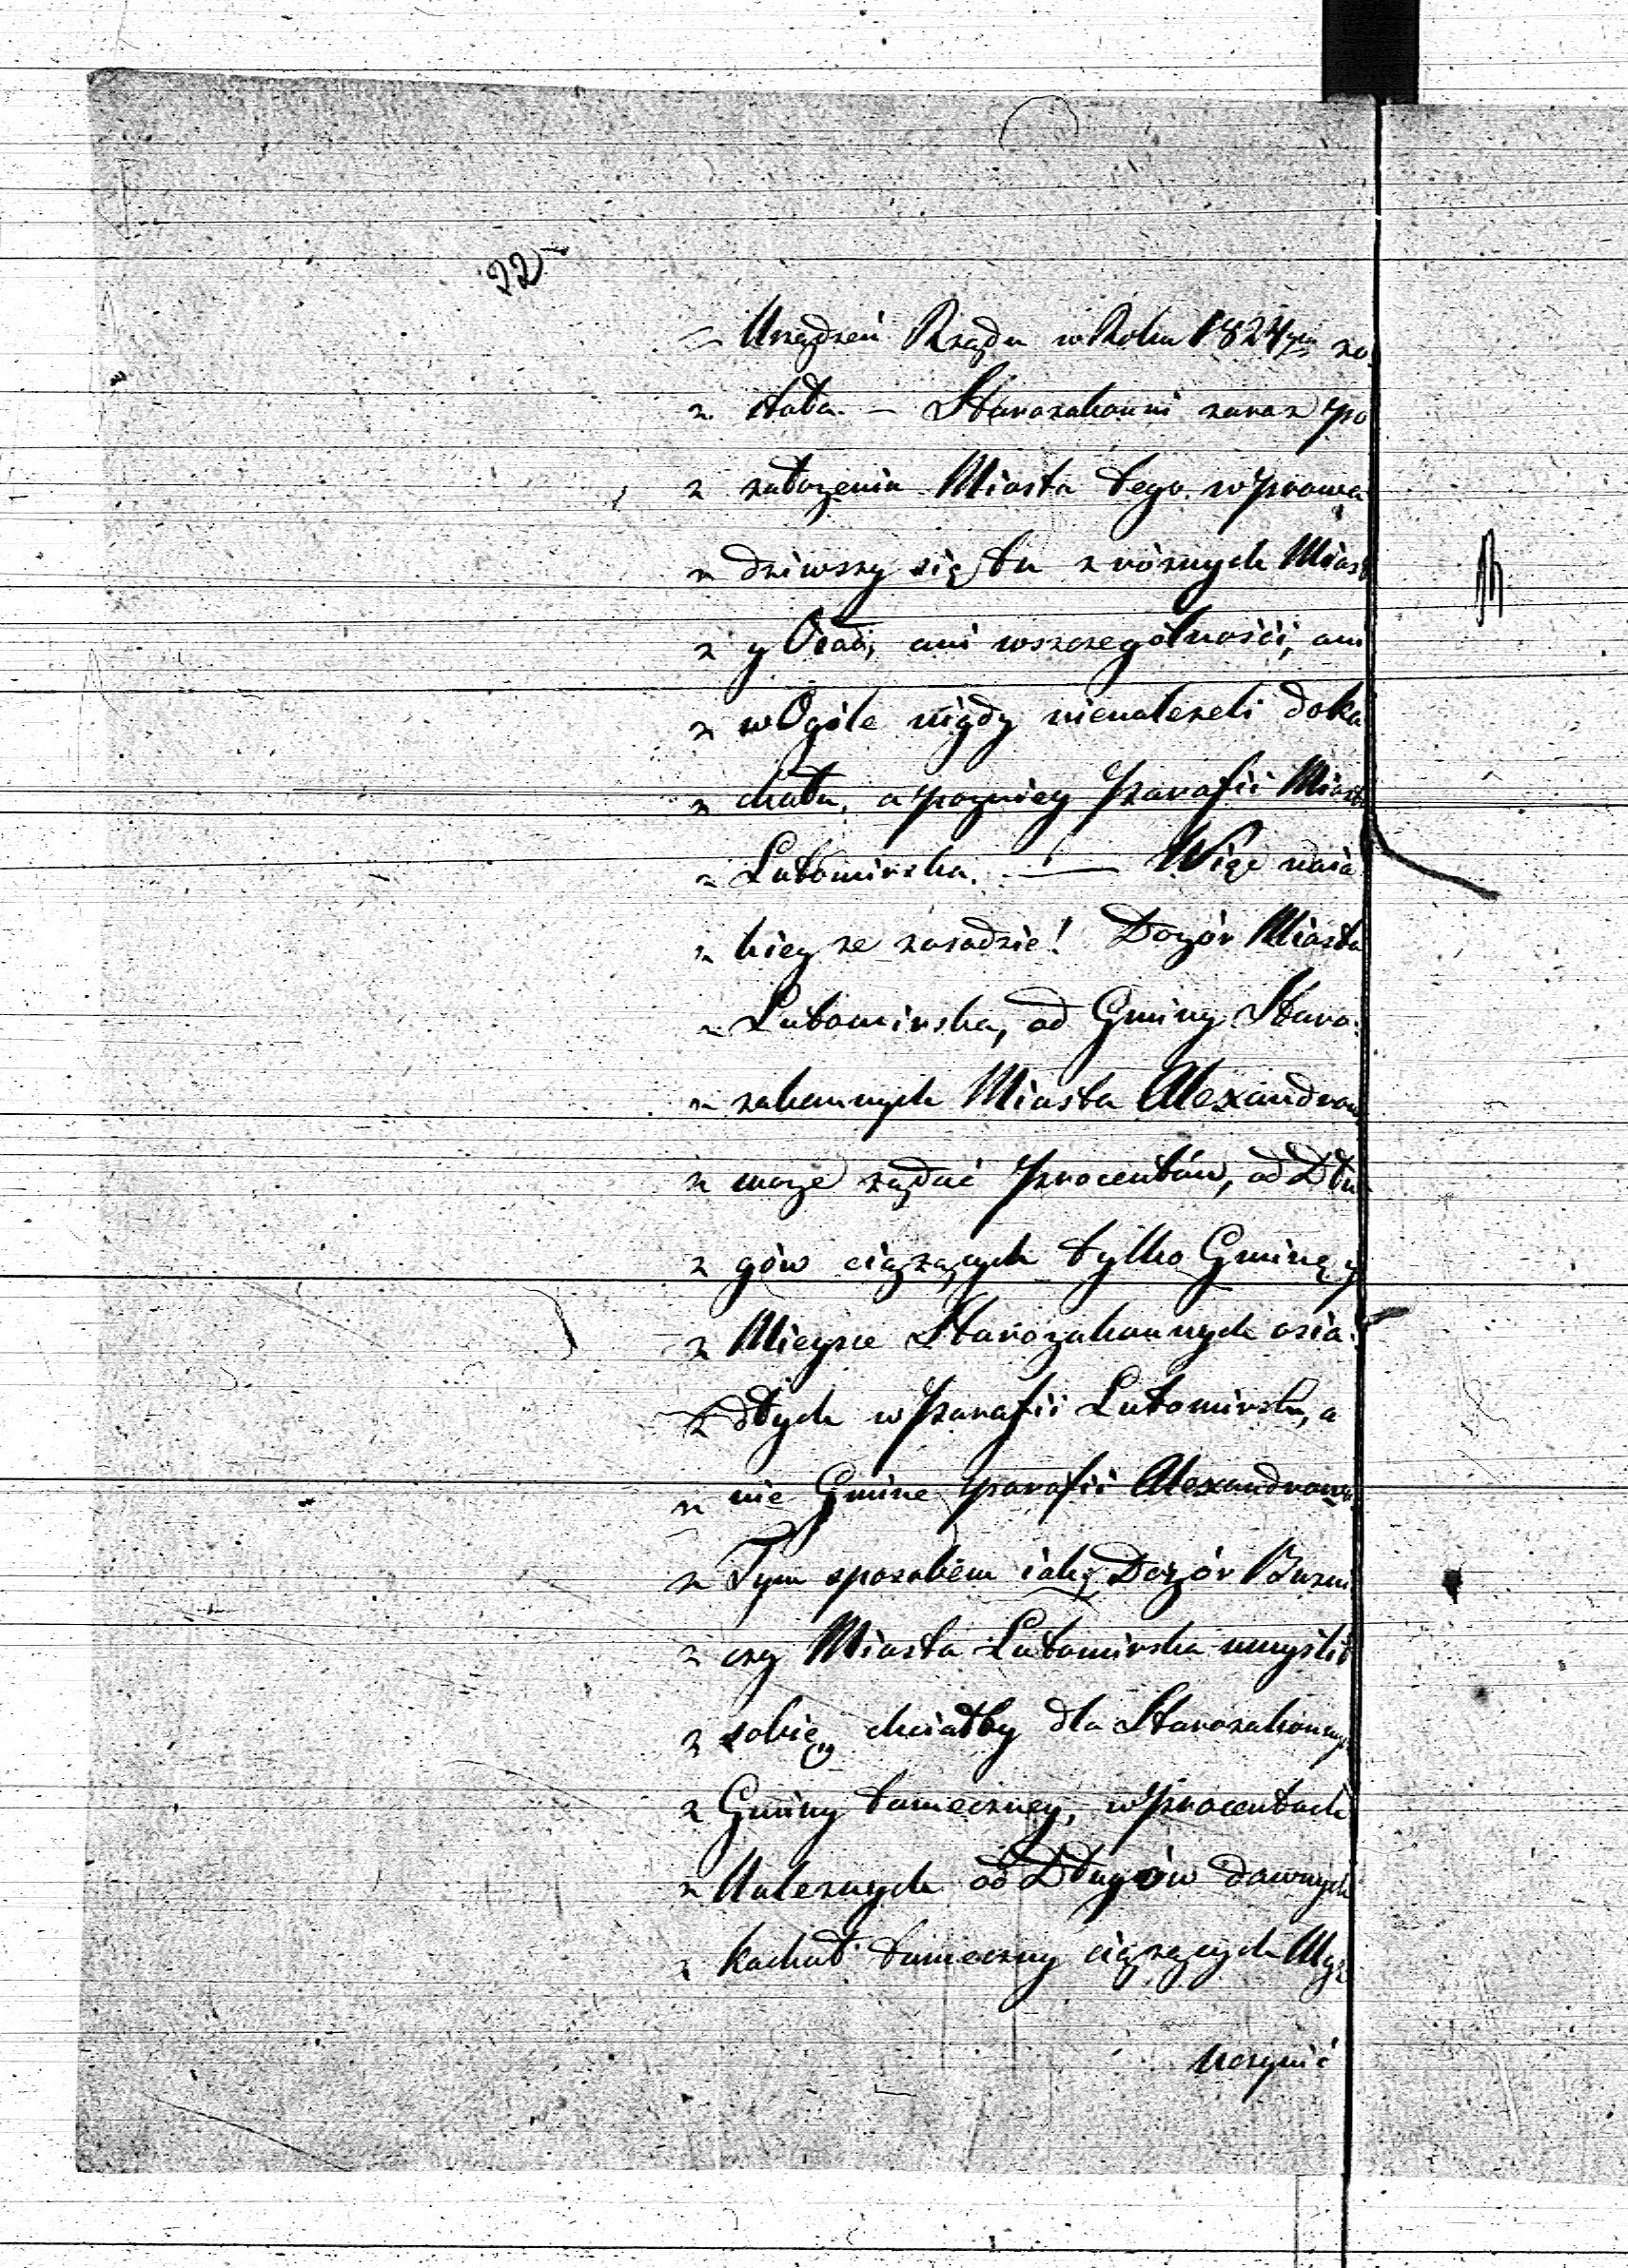 22
„ Urządzeń Rządu w Roku 1824ym zo
„ stała. — Starozakonni zaraz po
„ założeniu Miasta tego. wprowa
„ dziwszy się tu z różnych Miast
„ y Osad, ani wszczególności, ani
„ w Ogóle nigdy nienależeli do ka
„ chału, a pozniey Parafii Miasta
„ Lutomirska. — Więc na ia
„ kiey ze zasadzie! Dozór Miasta
„ Lutomirska, od Gminy Staro:
„ zakonnych Miasta Alexandrow
„ może żądać Procentów, od Dłu
„ gów ciążących tylko Gminę y
„ Mieysce Starozakonnych osia:
„ dłych w Parafii Lutomirsku, a
„ nie Gminę parafii Alexandrowa.
„ Tym sposobem iaki Dozór Bużni
„ czy Miasta Lutomirska umyślił
„ sobie, chciałby dla Starozakonnych
„ Gminy tameczney, w Procentach
„ Należnych od Długów dawnych
„ Kachał tameczny ciążących Ulgę
uczynić